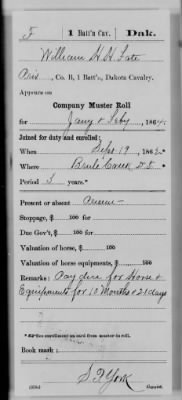 F 1 Batt'n Cav. Dak.
William H H Fate
Co. B, 1 Batt'n, Dakota Cavalry.
Appears on
Company Muster Roll
for Jany & Feby, 1864.
Joined for duty and enrolled:
When Sept 19, 1862
Where Brule Creek D.T.
Period 3 years.*
Present or absent
Stoppage, $ 100 for
Due Gov't, $ 100 for
Valuation of horse, $ 100
Valuation of horse equipments, $ 100
Remarks: Pay due for Horse &
Equipments for 10 months & 21 days
*See enrollment on card from muster-in roll.
Book mark:
S. P. York
(858) Copyist.